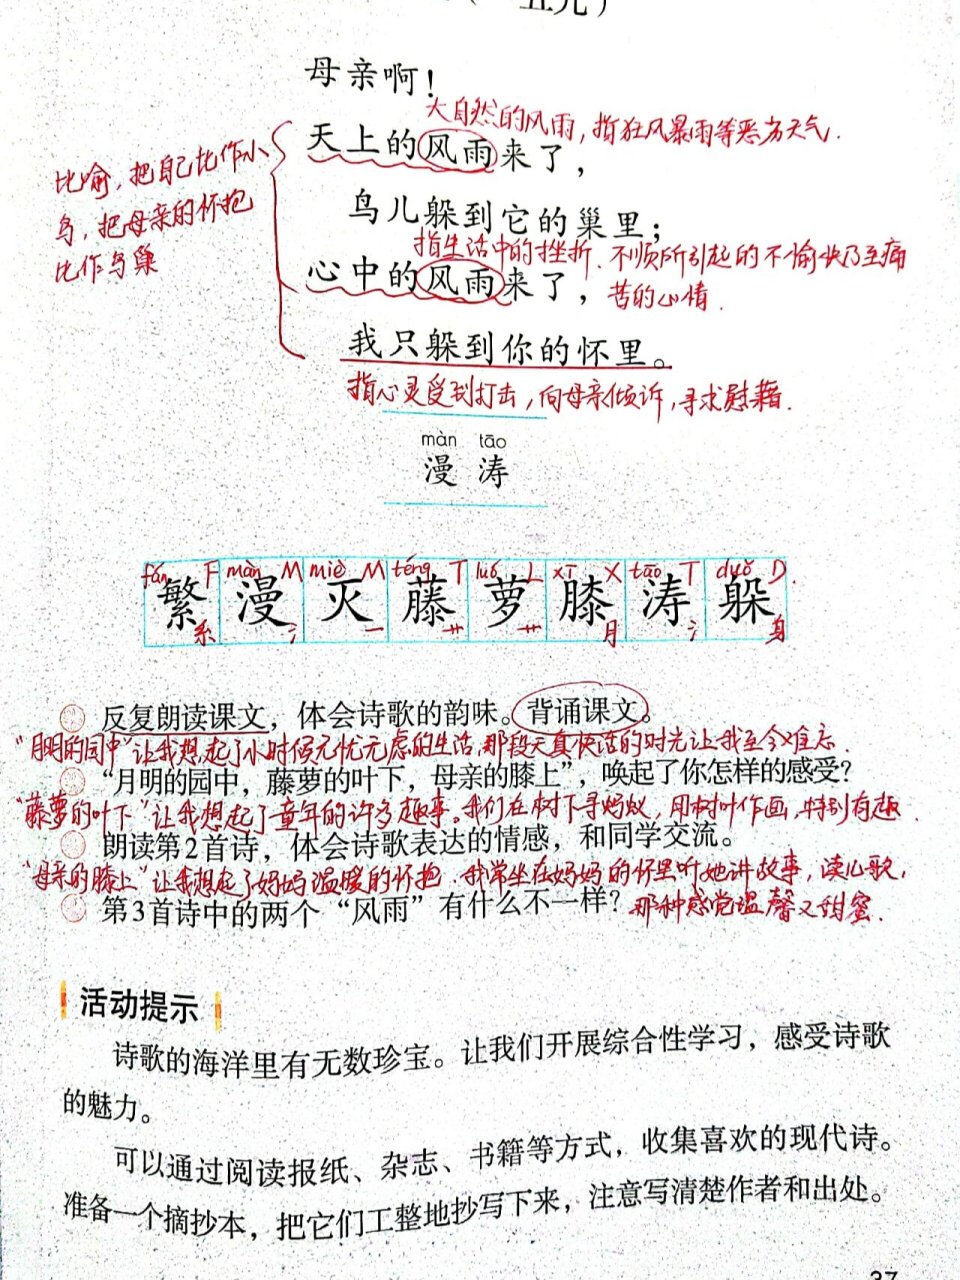 母亲啊！
大自然的风雨，指狂风暴雨等恶劣天气.
天上的风雨来了，
比喻，把自己比作小
鸟，把母亲的怀抱
比作鸟巢
鸟儿躲到它的巢里；
指生活中的挫折、不顺所引起的不愉快乃至痛
心中的风雨来了，
苦的心情.
我只躲到你的怀里。
指心灵受到打击，向母亲倾诉，寻求慰藉.
màn tāo
漫 涛
fán F màn M miè M téng T luó L xī X tāo T duǒ D
繁 漫 灭 藤 萝 膝 涛 躲
系 氵 一 艹 艹 月 氵 身
反复朗读课文，体会诗歌的韵味。背诵课文。
“月明的园中”让我想起了小时候无忧无虑的生活，那段天真快活的时光让我至今难忘.
“月明的园中，藤萝的叶下，母亲的膝上”，唤起了你怎样的感受？
“藤萝的叶下”让我想起了童年的许多趣事。我们在树下寻蚂蚁，用树叶作画，特别有趣.
朗读第2首诗，体会诗歌表达的情感，和同学交流。
“母亲的膝上”让我想起了妈妈温暖的怀抱.我常坐在妈妈的怀里听她讲故事，读儿歌，
第3首诗中的两个“风雨”有什么不一样？那种感觉温馨又甜蜜.
活动提示
诗歌的海洋里有无数珍宝。让我们开展综合性学习，感受诗歌
的魅力。
可以通过阅读报纸、杂志、书籍等方式，收集喜欢的现代诗。
准备一个摘抄本，把它们工整地抄写下来，注意写清楚作者和出处。
37